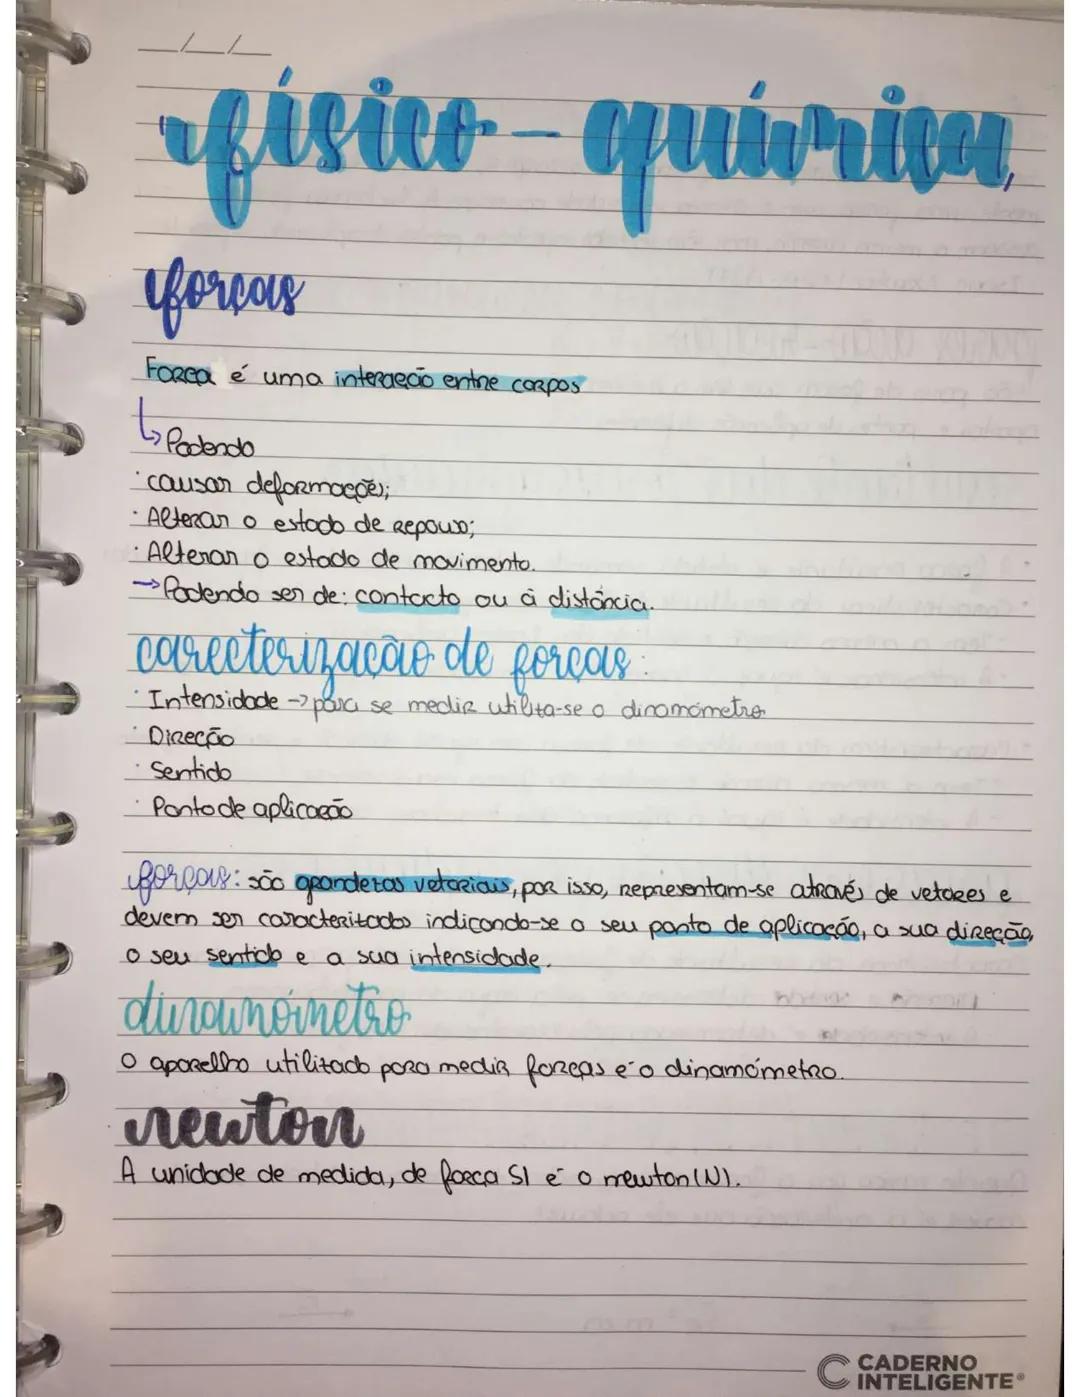 __/__/__
físico-química
forças
Força é uma interação entre corpos
↳ Podendo
· causar deformações;
· Alterar o estado de repouso;
· Alterar o estado de movimento.
→ Podendo ser de: contacto ou à distância.
carecterização de forças:
· Intensidade → para se medir utiliza-se o dinamómetro
· Direção
· Sentido
· Ponto de aplicação
forças: são grandezas vetoriais, por isso, representam-se através de vetores e
devem ser caracterizados indicando-se o seu ponto de aplicação, a sua direção,
o seu sentido e a sua intensidade.
dinamómetro
O aparelho utilizado para medir forças é o dinamómetro.
newton
A unidade de medida, de força SI é o newton (N).
CADERNO
INTELIGENTE®